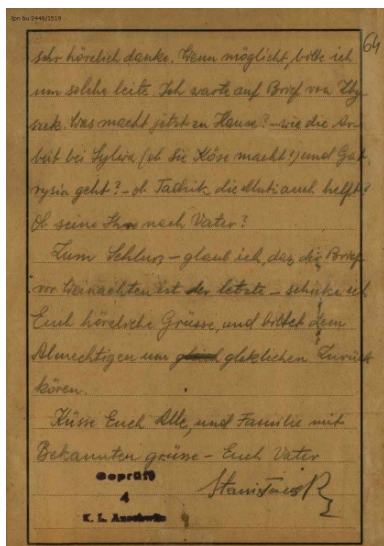 sehr hörzlich danke. Wenn möglicht, bitte ich
um solche leite. Ich warte auf Brief von Zby
szek. Was macht jetzt zu Hause? – wie die Ar
beit bei Sylwia (ob Sie Köse macht?) und
rysia geht? – ob Tadzik die Muti auch helft?
Ob seine nach Vater?
Zum Schluss – glaub ich, daz die Brief
vor Weinachten ist der letzte – schike ich
Euch hörzliche Grüsse, und bittet dem
Almechtigen um gleklichen Zurück
kören.
Küsse Euch Alle, und Familie mit
Bekannten grüsse – Euch Vater
Stanisław
Geprüft
4
K. L. Auschwitz
64